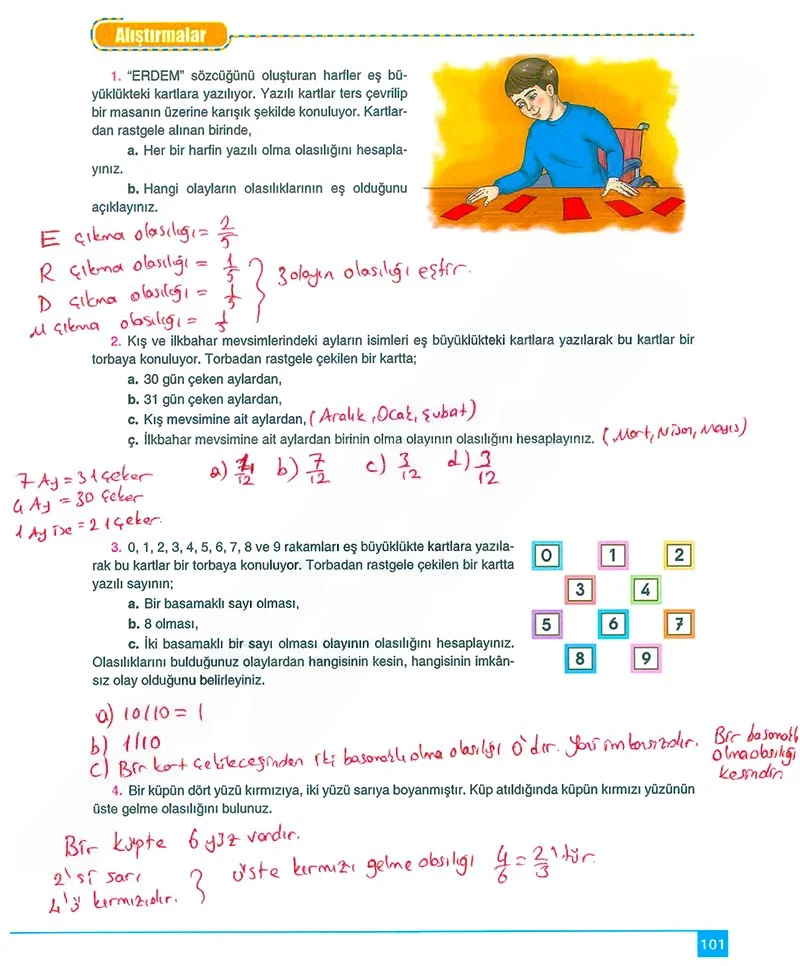 Alıştırmalar
1. "ERDEM" sözcüğünü oluşturan harfler eş bü-
yüklükteki kartlara yazılıyor. Yazılı kartlar ters çevrilip
bir masanın üzerine karışık şekilde konuluyor. Kartlar-
dan rastgele alınan birinde,
a. Her bir harfin yazılı olma olasılığını hesapla-
yınız.
b. Hangi olayların olasılıklarının eş olduğunu
açıklayınız.
E çıkma olasılığı = 2/5
R çıkma olasılığı = 1/5
D çıkma olasılığı = 1/5
M çıkma olasılığı = 1/5
} 3 olayın olasılığı eştir.
2. Kış ve ilkbahar mevsimlerindeki ayların isimleri eş büyüklükteki kartlara yazılarak bu kartlar bir
torbaya konuluyor. Torbadan rastgele çekilen bir kartta;
a. 30 gün çeken aylardan,
b. 31 gün çeken aylardan,
c. Kış mevsimine ait aylardan, (Aralık, Ocak, Şubat)
ç. İlkbahar mevsimine ait aylardan birinin olma olayının olasılığını hesaplayınız. (Mart, Nisan, Mayıs)
7 Ay = 31 çeker
4 Ay = 30 çeker
1 Ay ise = 21 çeker.
a) 4/12 b) 7/12 c) 3/12 d) 3/12
3. 0, 1, 2, 3, 4, 5, 6, 7, 8 ve 9 rakamları eş büyüklükte kartlara yazıla-
rak bu kartlar bir torbaya konuluyor. Torbadan rastgele çekilen bir kartta
yazılı sayının;
a. Bir basamaklı sayı olması,
b. 8 olması,
c. İki basamaklı bir sayı olması olayının olasılığını hesaplayınız.
Olasılıklarını bulduğunuz olaylardan hangisinin kesin, hangisinin imkân-
sız olay olduğunu belirleyiniz.
0 1 2
3 4
5 6 7
8 9
a) 10/10 = 1
b) 1/10
c) Bir kart çekileceğinden iki basamaklı olma olasılığı 0'dır. Yani imkansızdır.
Bir basamaklı
olma olasılığı
kesindir
4. Bir küpün dört yüzü kırmızıya, iki yüzü sarıya boyanmıştır. Küp atıldığında küpün kırmızı yüzünün
üste gelme olasılığını bulunuz.
Bir küpte 6 yüz vardır.
2'si sarı
4'ü kırmızıdır.
} üste kırmızı gelme olasılığı 4/6 = 2/3'tür.
101